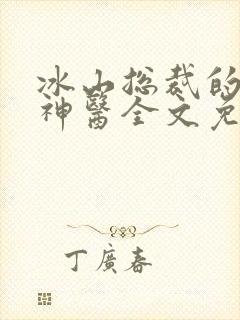 冰山总裁的
神医全文免
丁广春